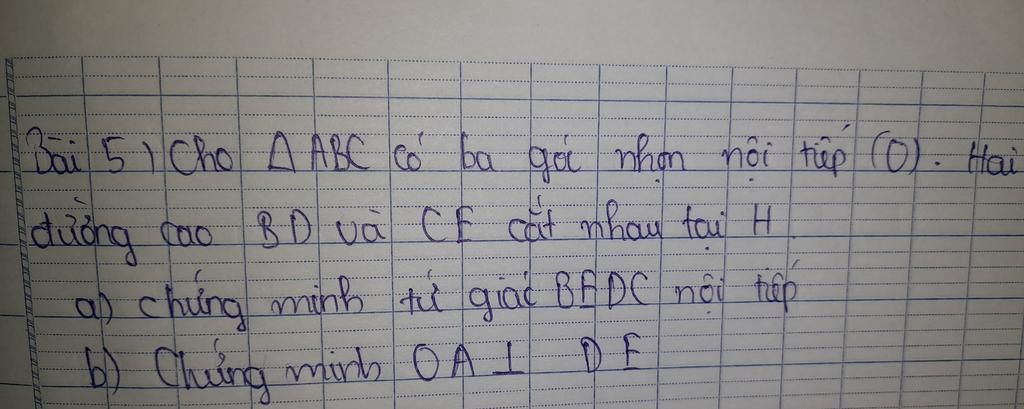 Bài 5) Cho Δ ABC có ba góc nhọn nội tiếp (O). Hai
đường cao BD và CE cắt nhau tại H
a) chứng minh tứ giác BEDC nội tiếp
b) Chứng minh OA ⊥ DE